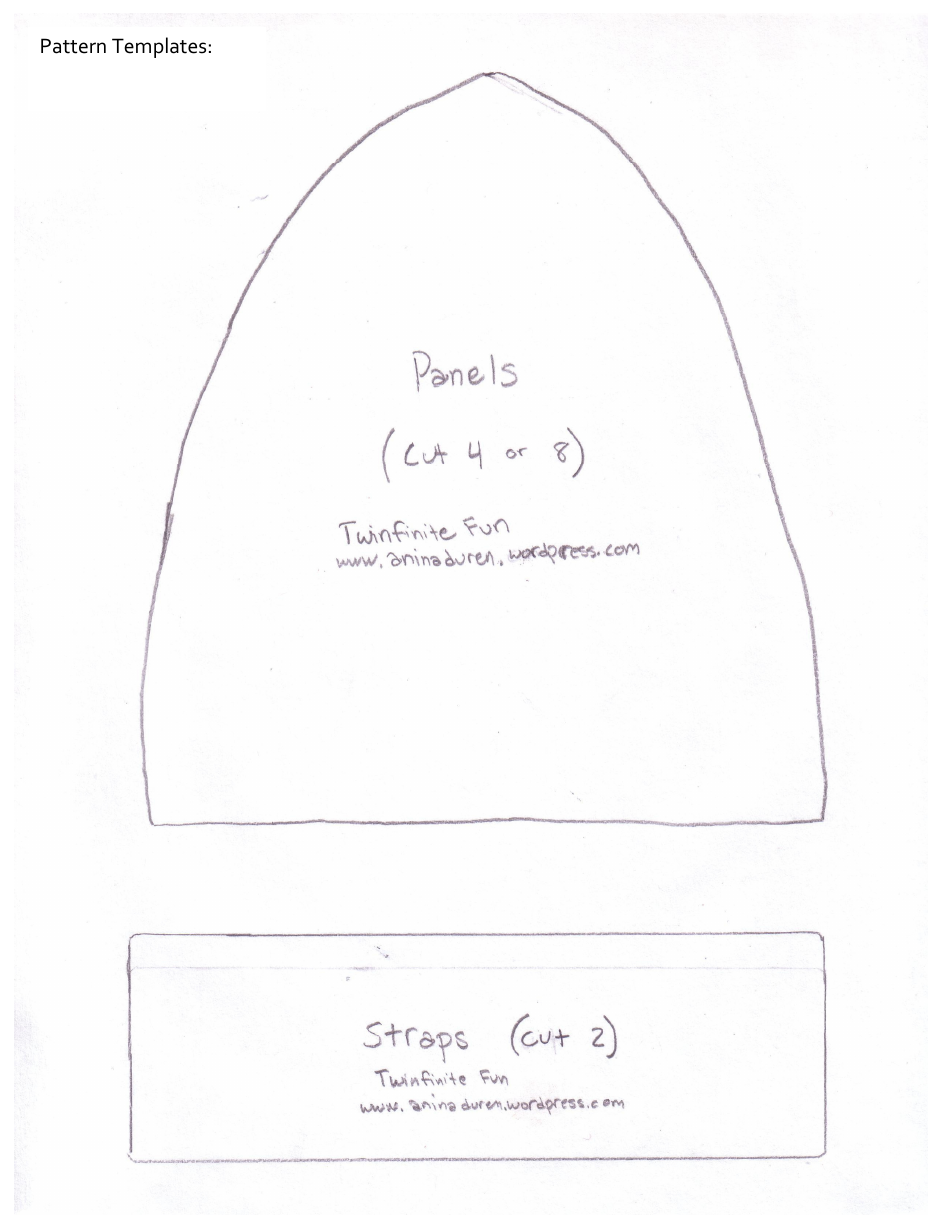 Pattern Templates:
Panels
(Cut 4 or 8)
Twinfinite Fun
www.aninaduren.wordpress.com
Straps (cut 2)
Twinfinite Fun
www.aninaduren.wordpress.com